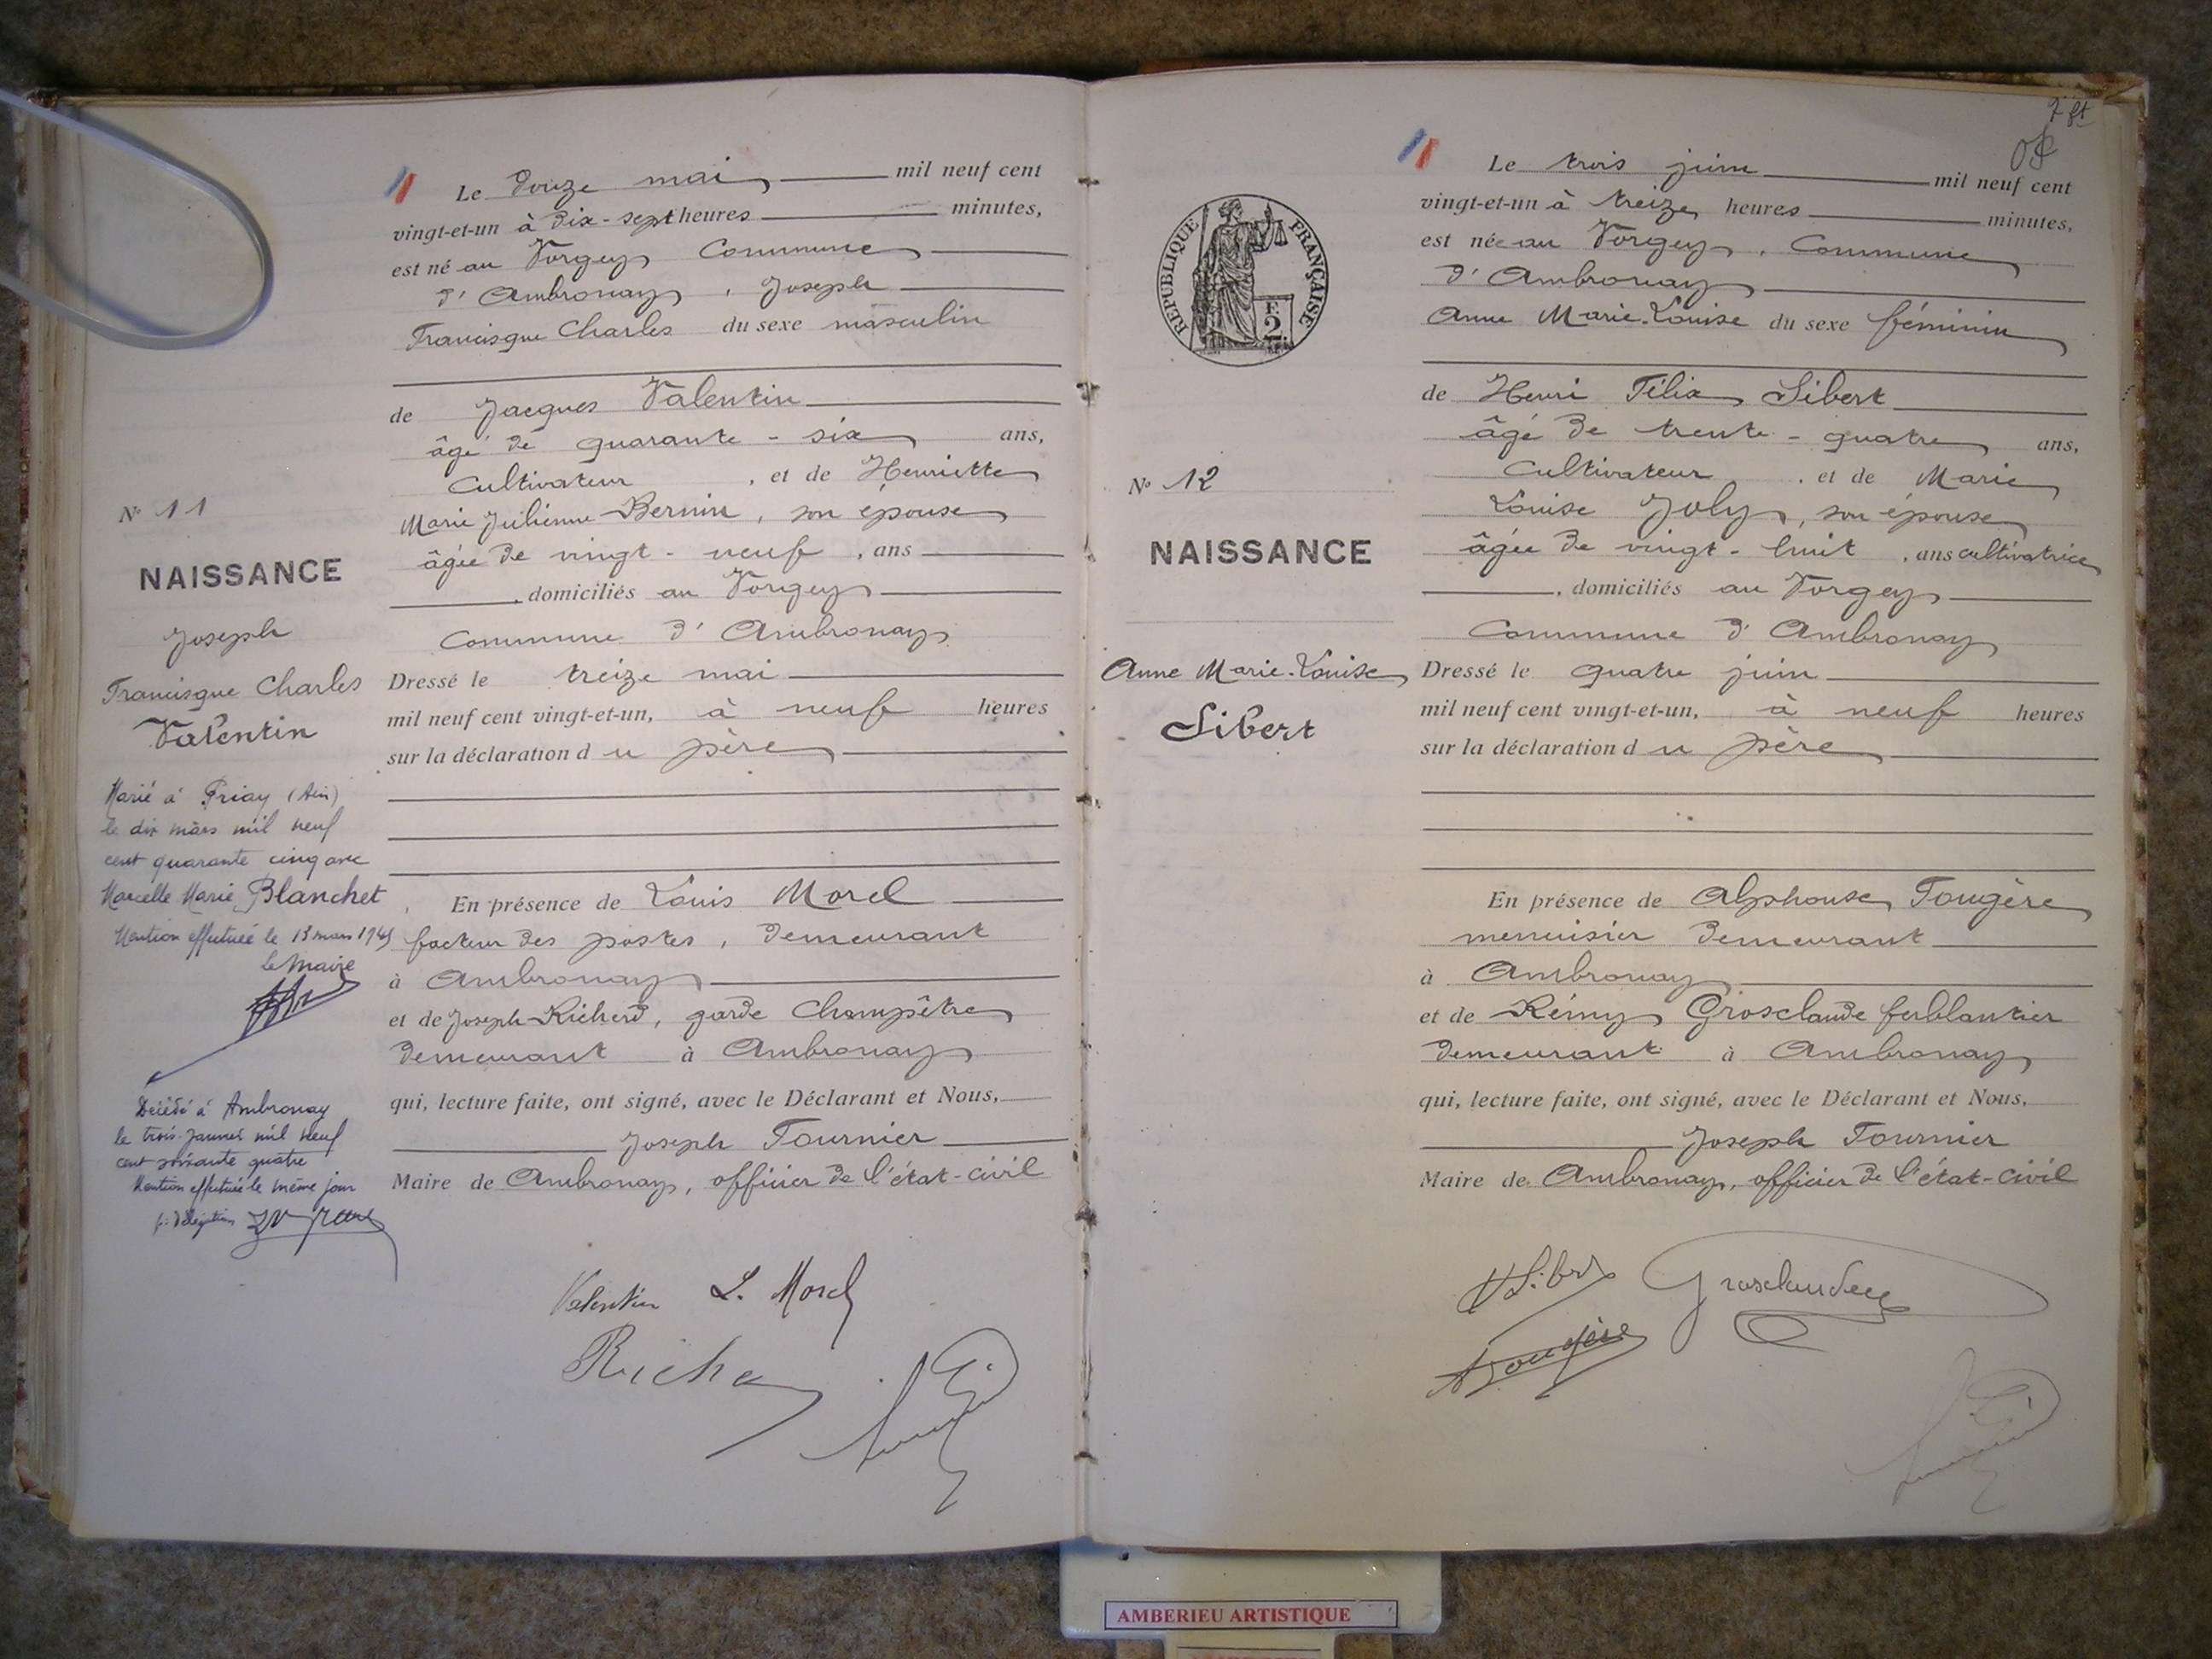 Nº 11
NAISSANCE
Joseph
Francisque Charles
Valentin
Marié à Priay (Ain)
le dix mars mil neuf
cent quarante cinq avec
Marcelle Marie Blanchet
Mention effectuée le 13 mars 1945
le Maire
Décédé à Ambronay
le trois janvier mil neuf
cent soixante quatre
Mention effectuée le même jour
p. délégation
Le douze mai mil neuf cent
vingt-et-un à dix-sept heures minutes,
est né au Vorgey Commune
d'Ambronay, Joseph
Francisque Charles du sexe masculin
de Jacques Valentin
âgé de quarante-six ans,
Cultivateur, et de Henriette
Marie Julienne Bernin, son épouse
âgée de vingt-neuf, ans
, domiciliés au Vorgey
Commune d'Ambronay
Dressé le treize mai
mil neuf cent vingt-et-un, à neuf heures
sur la déclaration du père
En présence de Louis Morel
facteur des postes, demeurant
à Ambronay
et de Joseph Richerd, garde Champêtre
demeurant à Ambronay
qui, lecture faite, ont signé, avec le Déclarant et Nous,
Joseph Tournier
Maire de Ambronay, officier de l'état-civil
Valentin L. Morel
Nº 12
NAISSANCE
Anne Marie-Louise
Sibert
RÉPUBLIQUE FRANÇAISE
F. 2
Le trois juin mil neuf cent
vingt-et-un à treize heures minutes,
est née au Vorgey, Commune
d'Ambronay
Anne Marie-Louise du sexe féminin
de Henri Félix Sibert
âgé de trente-quatre ans,
Cultivateur, et de Marie
Louise Joly, son épouse
âgée de vingt-huit, ans cultivatrice
, domiciliés au Vorgey
Commune d'Ambronay
Dressé le quatre juin
mil neuf cent vingt-et-un, à neuf heures
sur la déclaration du père
En présence de Alphonse Fougère
menuisier demeurant
à Ambronay
et de Rémy Grosclaude ferblantier
demeurant à Ambronay
qui, lecture faite, ont signé, avec le Déclarant et Nous,
Joseph Tournier
Maire de Ambronay, officier de l'état-civil
AMBERIEU ARTISTIQUE